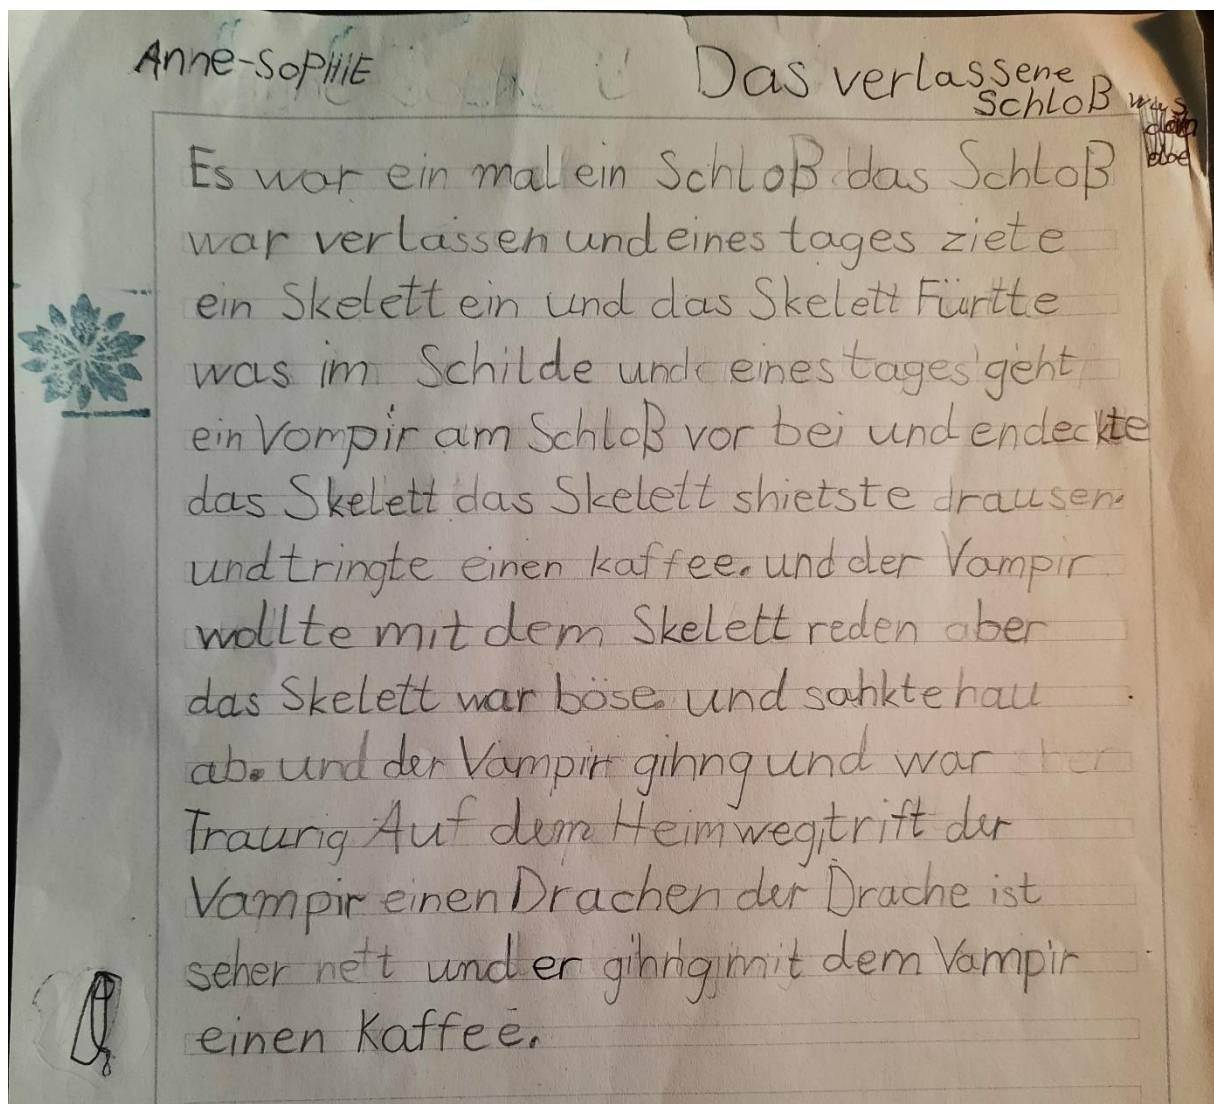 Anne-SoPHiE
Das verlassene
Schloß
Es war ein mal ein Schloß das Schloß
war verlassen und eines tages ziete
ein Skelett ein und das Skelett Fürtte
was im Schilde und eines tages geht
ein Vampir am Schloß vor bei und endeckte
das Skelett das Skelett shietste drausen.
und tringte einen kaffee. und der Vampir
wollte mit dem Skelett reden aber
das Skelett war böse. und sahkte hau
ab. und der Vampir gihng und war
Traurig Auf dem Heimweg trift der
Vampir einen Drachen der Drache ist
seher nett und er gihng mit dem Vampir
einen Kaffee.